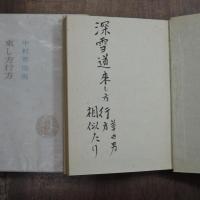 深雪道
来し方
行方
相似たり
草田男
中村草田男
来し方行方